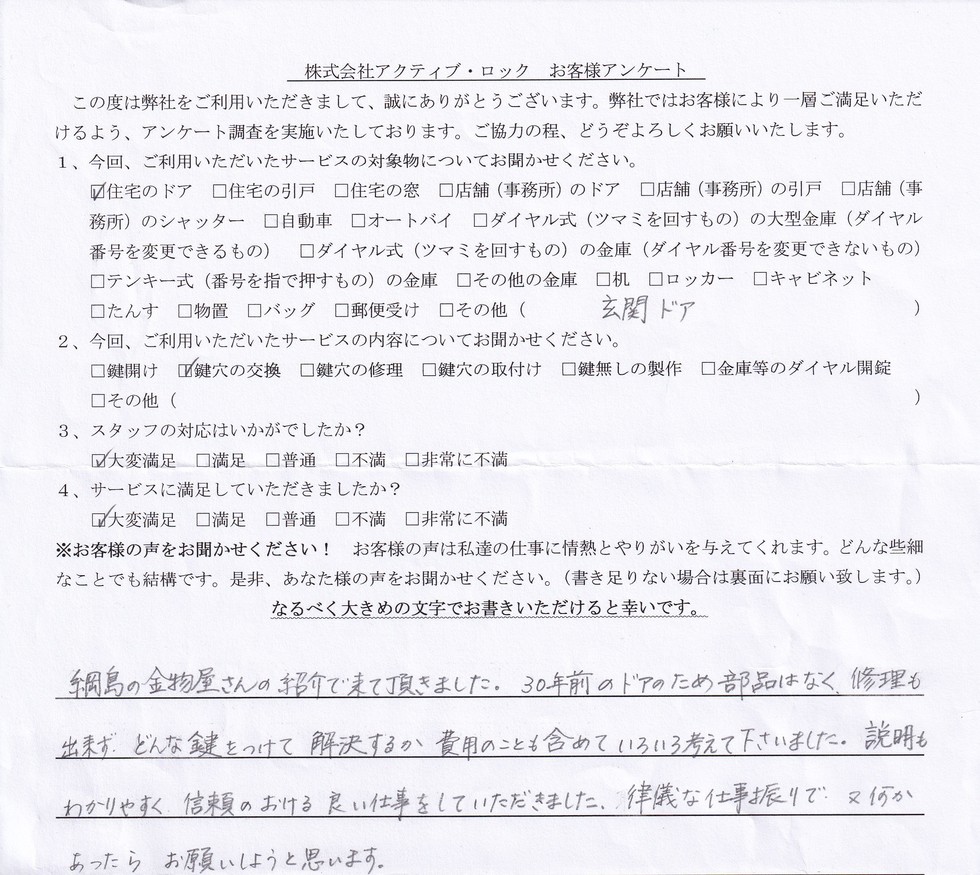 株式会社アクティブ・ロック　お客様アンケート
この度は弊社をご利用いただきまして、誠にありがとうございます。弊社ではお客様により一層ご満足いただ
けるよう、アンケート調査を実施いたしております。ご協力の程、どうぞよろしくお願いいたします。
１、今回、ご利用いただいたサービスの対象物についてお聞かせください。
☑住宅のドア　□住宅の引戸　□住宅の窓　□店舗（事務所）のドア　□店舗（事務所）の引戸　□店舗（事
務所）のシャッター　□自動車　□オートバイ　□ダイヤル式（ツマミを回すもの）の大型金庫（ダイヤル
番号を変更できるもの）　□ダイヤル式（ツマミを回すもの）の金庫（ダイヤル番号を変更できないもの）
□テンキー式（番号を指で押すもの）の金庫　□その他の金庫　□机　□ロッカー　□キャビネット
□たんす　□物置　□バッグ　□郵便受け　□その他（　玄関ドア　）
２、今回、ご利用いただいたサービスの内容についてお聞かせください。
□鍵開け　☑鍵穴の交換　□鍵穴の修理　□鍵穴の取付け　□鍵無しの製作　□金庫等のダイヤル開錠
□その他（　）
３、スタッフの対応はいかがでしたか？
☑大変満足　□満足　□普通　□不満　□非常に不満
４、サービスに満足していただきましたか？
☑大変満足　□満足　□普通　□不満　□非常に不満
※お客様の声をお聞かせください！　お客様の声は私達の仕事に情熱とやりがいを与えてくれます。どんな些細
なことでも結構です。是非、あなた様の声をお聞かせください。（書き足りない場合は裏面にお願い致します。）
なるべく大きめの文字でお書きいただけると幸いです。
綱島の金物屋さんの紹介で来て頂きました。30年前のドアのため部品はなく、修理も
出来ず、どんな鍵をつけて解決するか費用のことも含めていろいろ考えて下さいました。説明も
わかりやすく、信頼のおける良い仕事をしていただきました、律儀な仕事振りで、又何か
あったらお願いしようと思います。